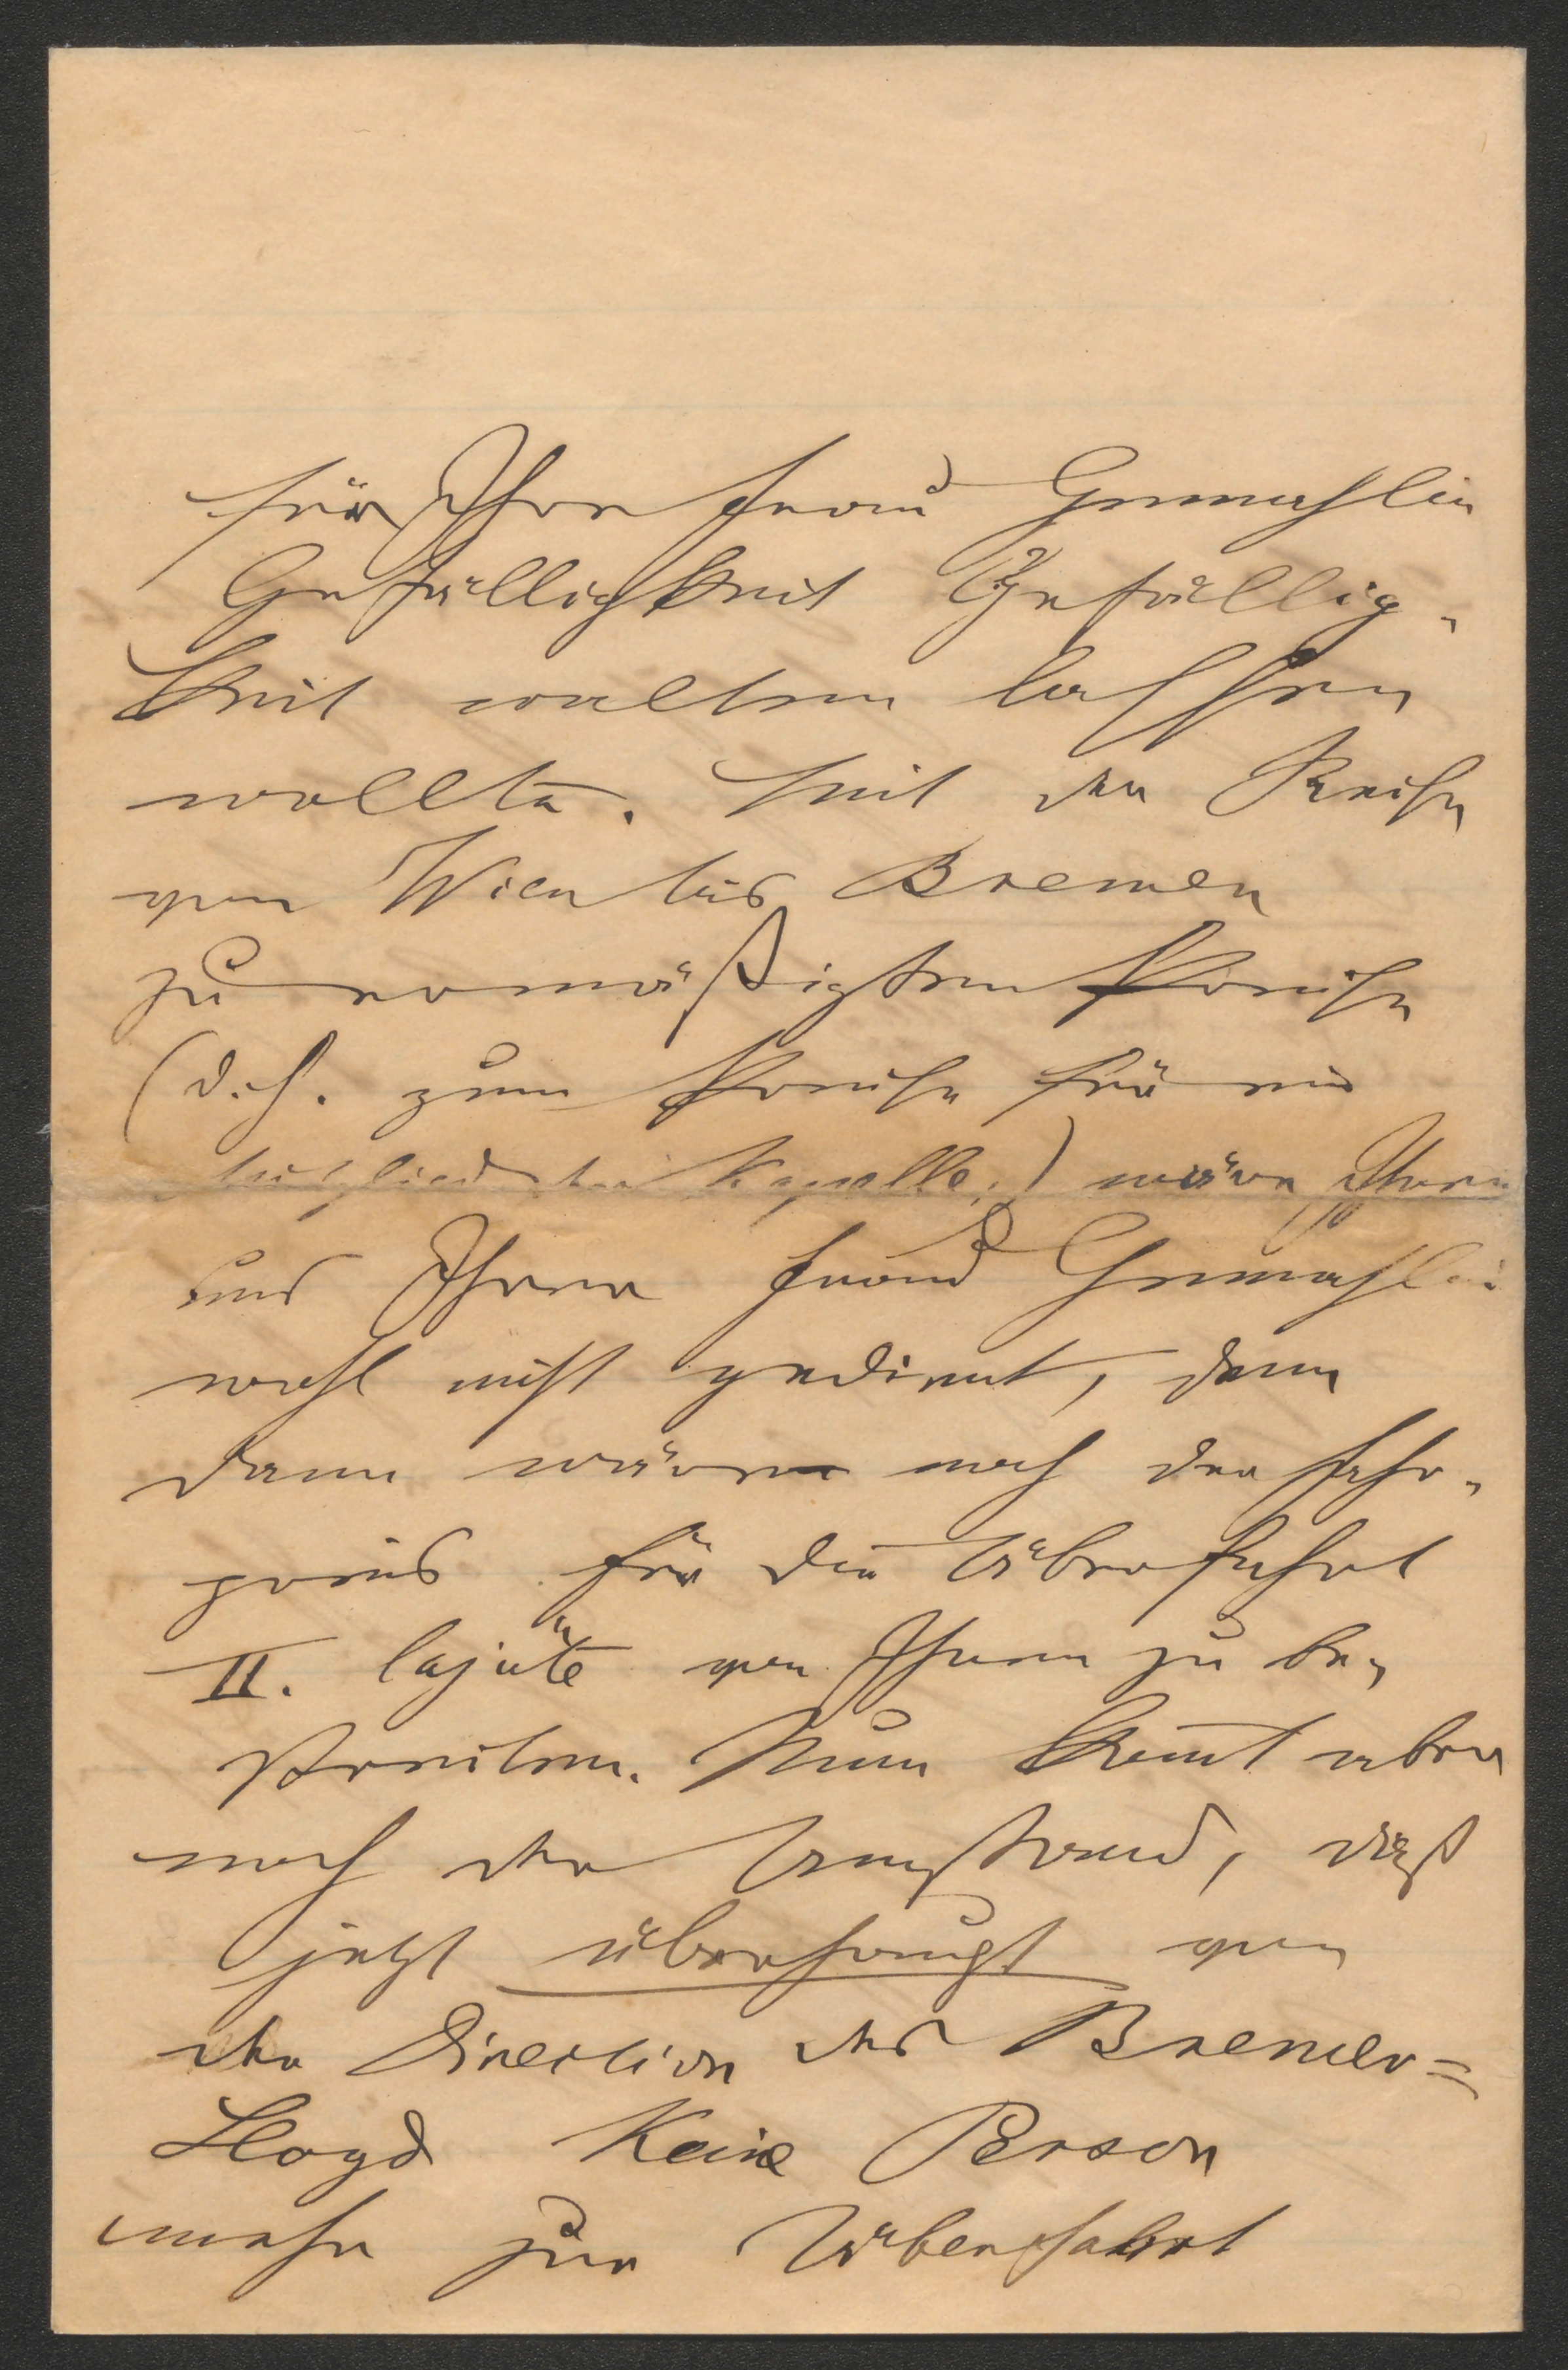 für Ihre Frau Gemahlin
Gefälligkeit Gefällig-
keit walten lassen
wollte. Mit der Reise
von Wien bis Bremen
zu ermäßigtem Preise
(d.h. zum Preise für ein
Mitglied der Kapelle.) wäre Ihnen
und Ihrer Frau Gemahlin
wohl nicht gedient, denn
dann wäre noch der Fahr-
preis für die Überfahrt
II. Cajüte von Ihnen zu be-
streiten. Nun kom̅t aber
noch der Umstand, daß
jetzt überhaupt von
der Direction des Bremer=
Lloyd keine Person
mehr zur Überfahrt